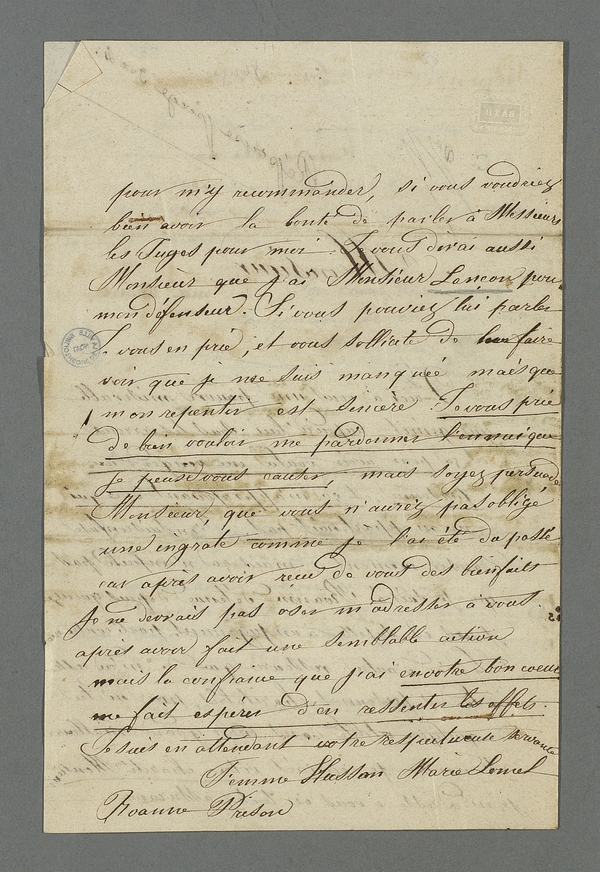 pour m'y recommander, si vous voudriez
bien avoir la bonté de parler à Messieurs
les Juges pour moi. Je vous dirai aussi
Monsieur que j'ai Monsieur Lançon pour
mon défenseur. Si vous pouviez lui parler
Je vous en prie, et vous sollicite de leur faire
voir que je me suis manquée mais que
mon repentir est sincère. Je vous prie
de bien vouloir me pardonner l'ennui que
je peux vous causer, mais soyez persuadé
Monsieur, que vous n'aurez pas obligé
une ingrate comme je l'ai été du passé
car après avoir reçu de vous des bienfaits
Je ne devrais pas oser m'adresser à vous.
après avoir fait une semblable action
mais la confiance que j'ai en votre bon coeur
me fait espérer d'en ressentir les effets.
Je suis en attendant votre respectueuse servante
Femme Husson Marie
Roanne Prison